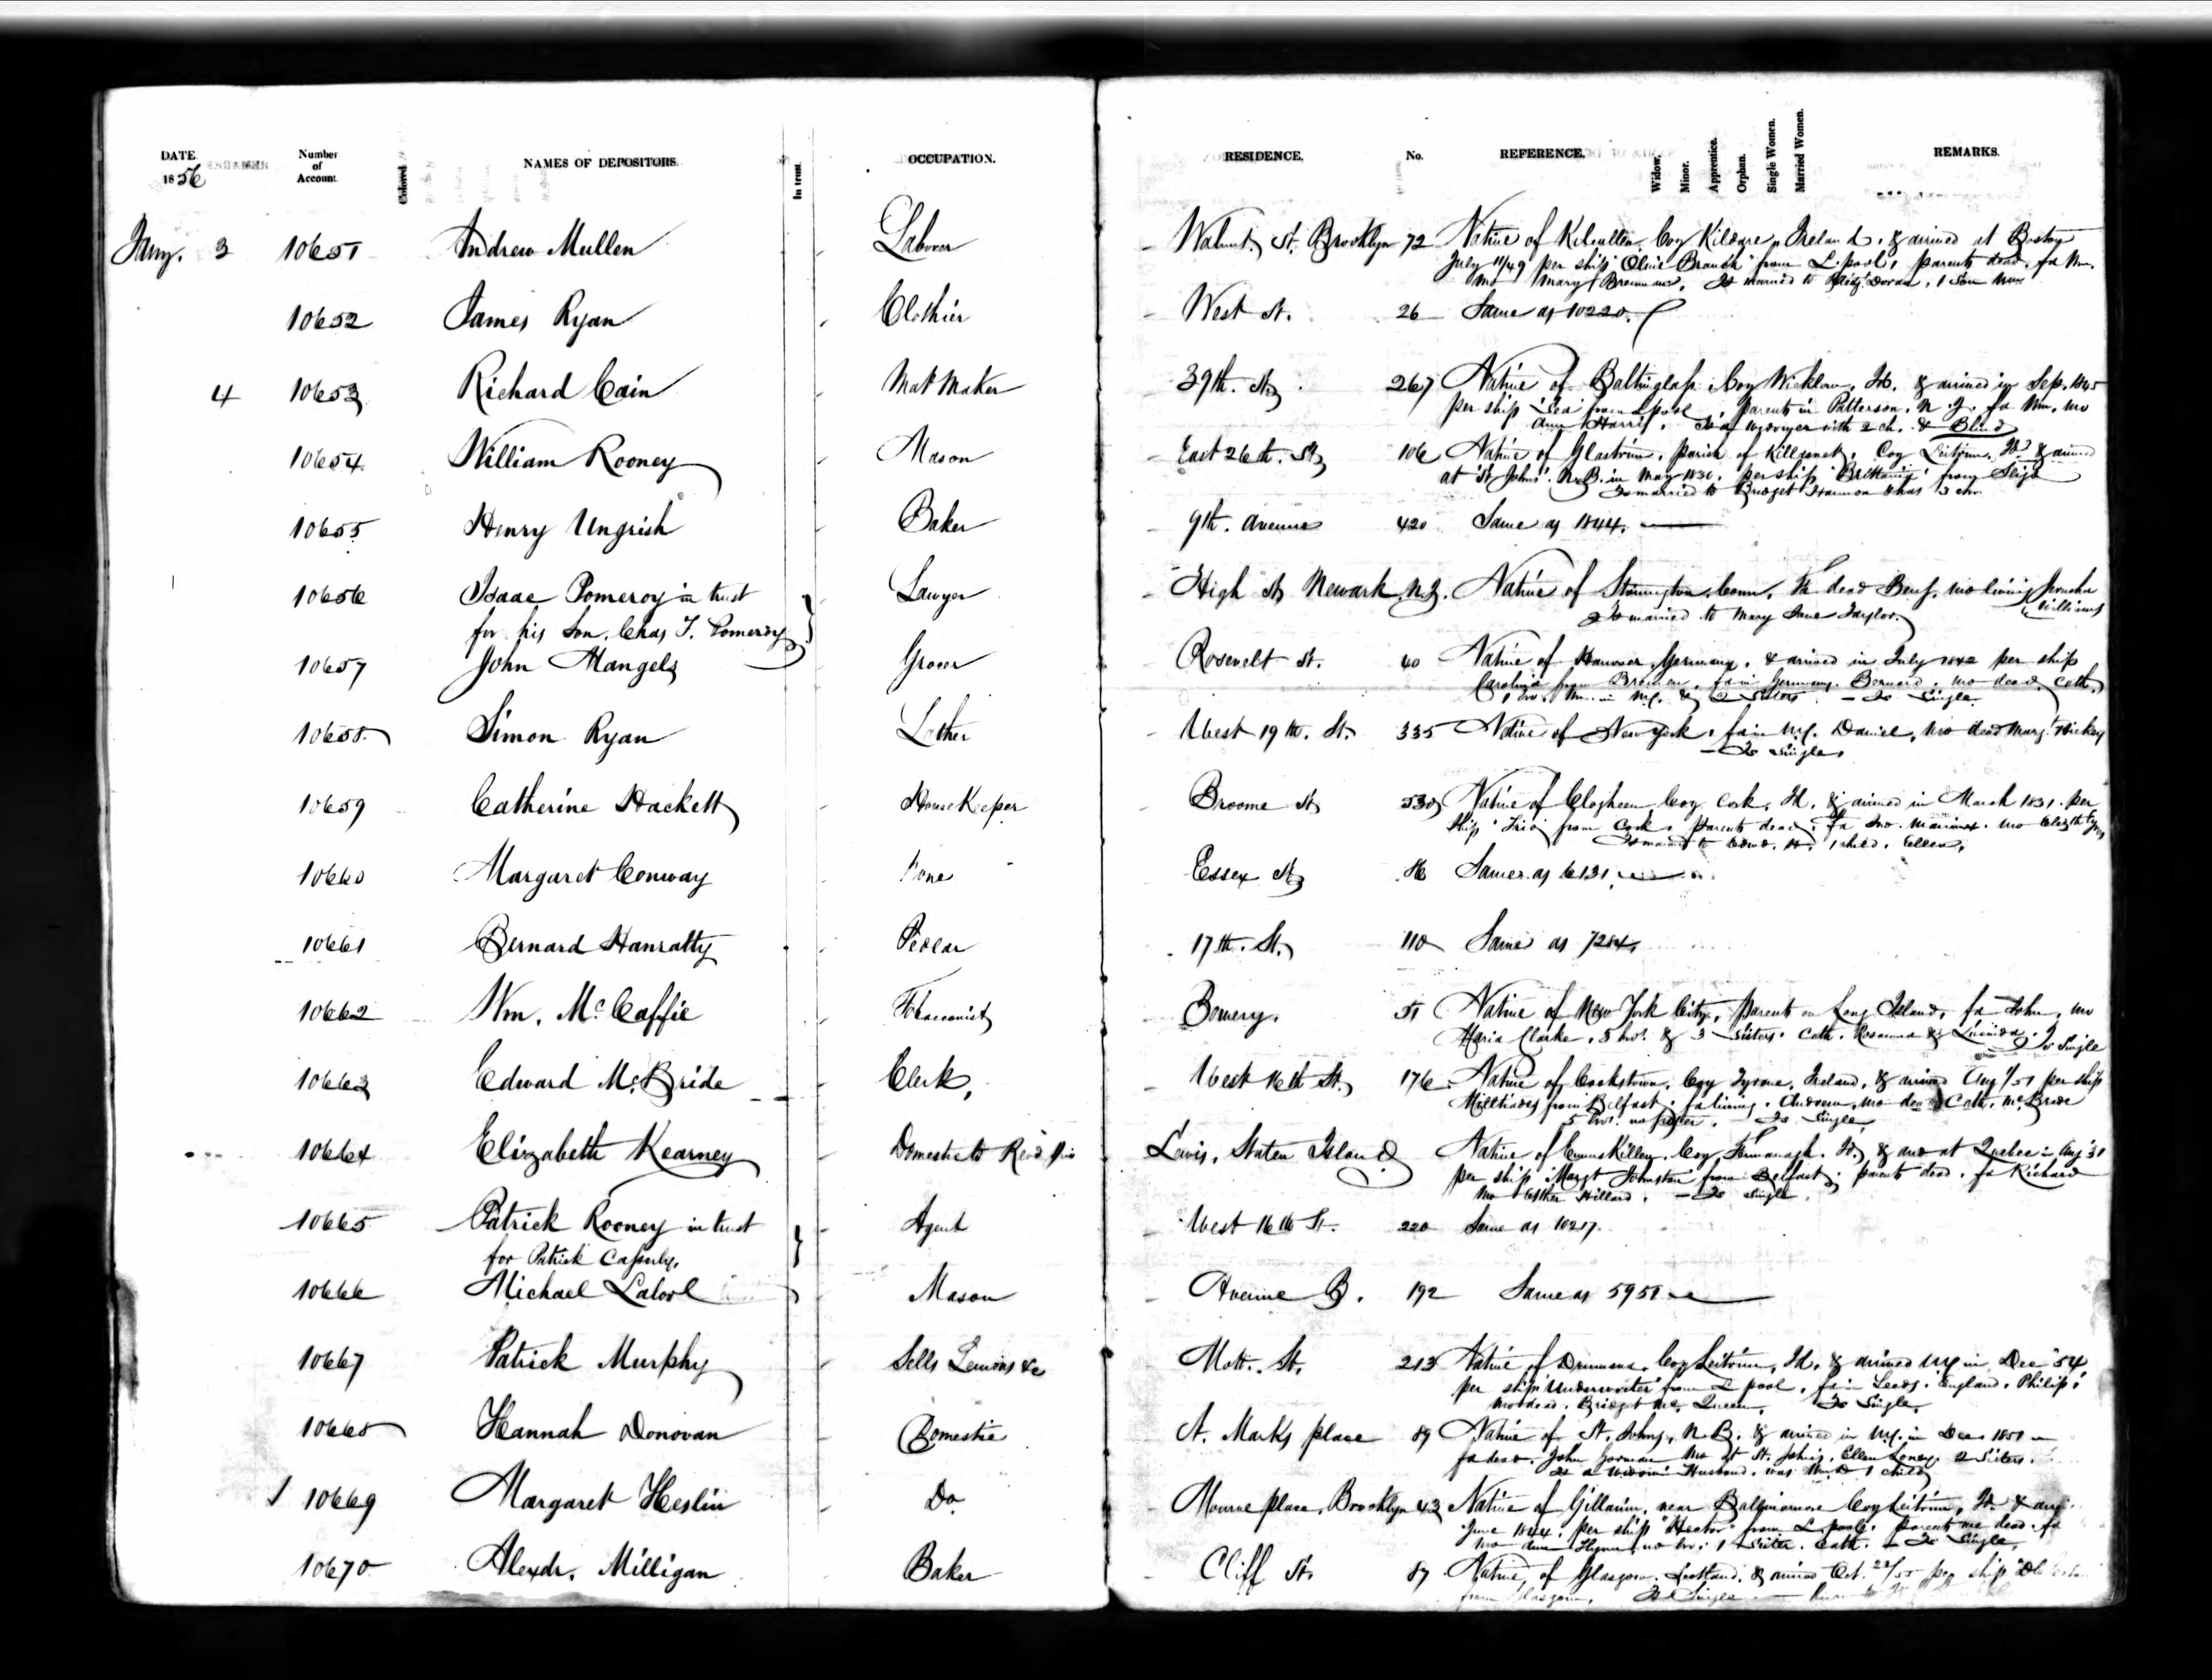 DATE. 1856
Number of Account.
Colored.
NAMES OF DEPOSITORS.
In trust.
OCCUPATION.
RESIDENCE.
No.
REFERENCE.
Widow.
Minor.
Apprentice.
Orphan.
Single Women.
Married Women.
REMARKS.
Jany. 3 10651 Andrew Mullen Laborer Walnut St. Brooklyn 72 Native of Kilcullen Coy Kildare, Ireland, & arrived at Boston
July 11/49 per ship "Olive Branch" from L.pool, parents dead. fa Wm.
mo Mary Brennan. Is married to Doran, 1 Son Wm
10652 James Ryan Clothier West St. 26 Same as 10220.
4 10653 Richard Cain Mat Maker 39th. St 267 Native of Baltinglass Coy Wicklow, Id. & arrived in Sep. 1845
per ship "Sea" from Lpool, parents in Patterson, N.J. fa Wm. mo
Ann Harris. Is a widower with 2 ch. & Blind
10654 William Rooney Mason East 26th. St 106 Native of parish of Coy Leitrim, Id & arrived
at St Johns' N.B. in May per ship "Brittania" from Sligo
Is married to Bridget Hannon & has 3 chn
10655 Henry Ungrish Baker 9th. avenue 420 Same as 1844.
10656 Isaac Pomeroy in trust Lawyer High St Newark N.J. Native of Stonnington, Conn. Fa dead Benj. mo living Jerusha
Williams
for his Son, Chas T. Pomeroy Is married to Mary Jane Taylor.
10657 John Mangels Grocer Rosevelt St. 40 Native of Hanover, Germany, & arrived in July 1842 per ship
Carolina from Bremen, fa in Germany. Bernard. mo dead, Cath.
1 bro. Wm. in N.Y. & 2 Sisters - Is Single.
10658 Simon Ryan Lather West 19th. St. 335 Native of New York, fa in N.Y. Daniel, mo dead Margt Hickey
- Is Single.
10659 Catherine Hackett HouseKeeper Broome St 530 Native of Clogheen Coy Cork, Id. & arrived in March 1831. per
Ship "Trio" from Cork. Parents dead, fa Jno. mo Elizth
Is married to Edwd. H. 1 child. Ellen.
10660 Margaret Conway None Essex St 86 Same as 6131.
10661 Bernard Hanratty Pedlar 17th. St. 110 Same as 7284.
10662 Wm. McCaffie Tobacconist Bowery. 51 Native of New York City, Parents on Long Island, fa John, mo
Maria Clarke, 5 bro. & 3 Sisters. Cath. Rosanna & Lucinda. Is Single
10663 Edward McBride Clerk, West 16th St. 176 Native of Cookstown, Coy Tyrone, Ireland, & arrived Aug 1/51 per ship
Milltiades from Belfast, fa living, Andrew, mo dead Cath. McBride
5 bro. no sister. - Is Single
10664 Elizabeth Kearney Domestic to Lewis, Staten Island Native of Enniskillen, Coy Fermanagh. Id. & arr at Quebec in Aug '31
per ship "Margt Johnston" from Belfast, parents dead. fa Richard
mo Esther Hillard. - Is Single.
10665 Patrick Rooney in trust Agent West 16th St. 220 Same as 10217.
for Patrick Casserly.
10666 Michael Lalor Mason Avenue B. 192 Same as 5951
10667 Patrick Murphy Sells Lemons &c Mott. St. 213 Native of Coy Leitrim, Id. & arrived N.Y. in Dec "54
per ship "Underwriter" from L pool, fa in Leeds, England, Philip,
mo dead. Bridget Mc. Queen, Is Single.
10668 Hannah Donovan Domestic St. Marks place 89 Native of St. Johns, N.B. & arrived in N.Y. in Dec 1851
fa dead. John Gorman Mo at St. Johns, Ellen 2 Sisters.
Is a widow Husband was 1 child
10669 Margaret Heslin Do. Monroe place, Brooklyn 43 Native of near Ballinamore Coy Leitrim, Id. & arr.
June 1844. per ship "Hector" from L pool. parents are dead. fa
mo Ann Flynn, no bro: 1 Sister. Cath. - Is Single.
10670 Alexdr. Milligan Baker Cliff St. 87 Native of Glasgow, Scotland, & arrived Oct. 22/55 per ship
from Glasgow. Is Single